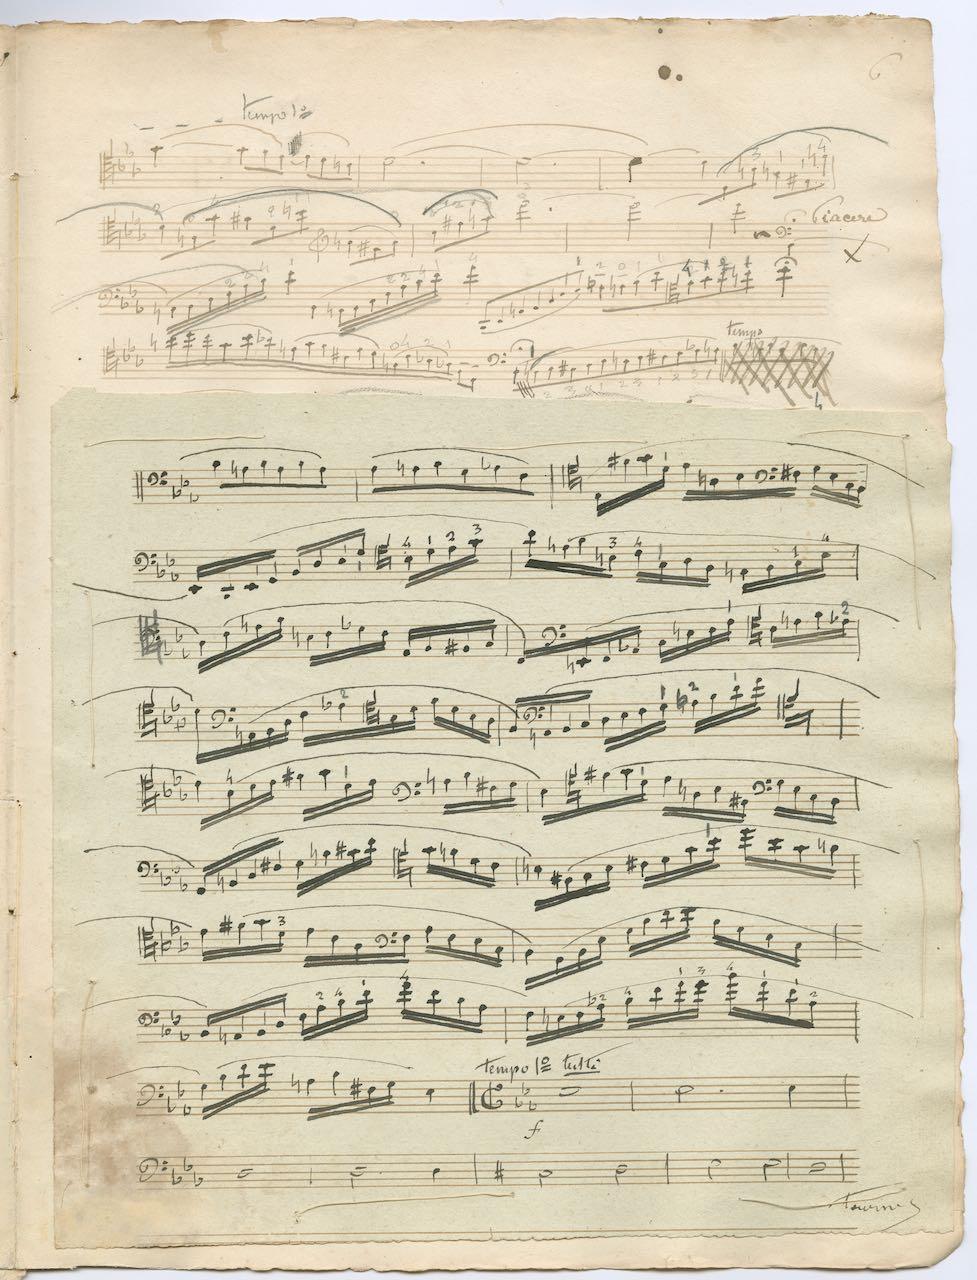 6
tempo 1º
Piacere
tempo
tempo 1º tutti
f
tournez